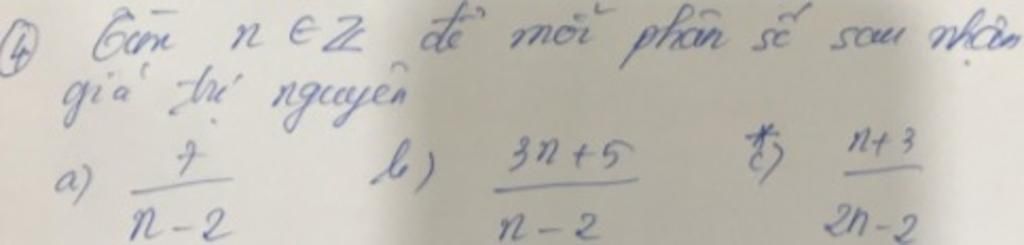 ④ Tìm n ∈ Z để mỗi phân số sau nhận
giá trị nguyên
a) 7/(n - 2) b) (3n + 5)/(n - 2) *c) (n + 3)/(2n - 2)